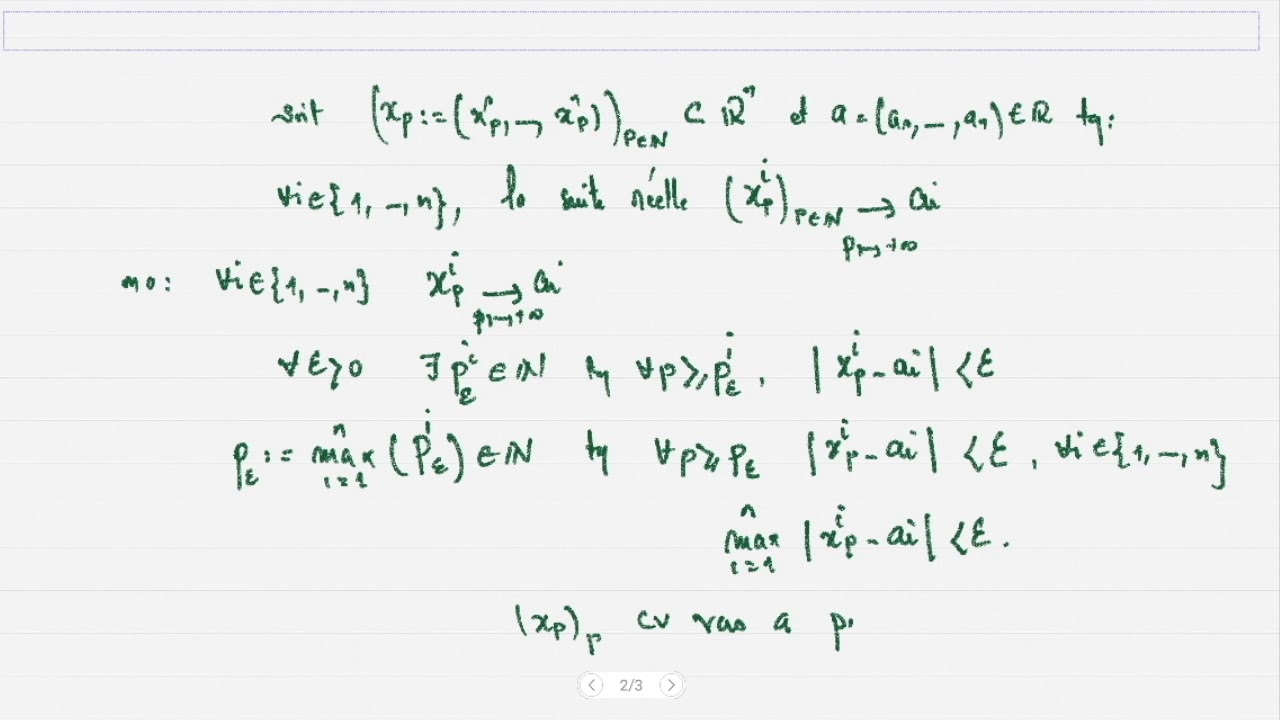 soit (x_p := (x_p^1, –, x_p^n))_{p∈ℕ} ⊂ ℝ^n et a = (a_1, –, a_n) ∈ ℝ tq:
∀i∈{1, –, n}, la suite réelle (x_p^i)_{p∈ℕ} ⟶_{p→+∞} a_i
mo: ∀i∈{1, –, n} x_p^i ⟶_{p→+∞} a_i
∀ε>0 ∃ p_ε^i ∈ ℕ tq ∀p ≥ p_ε^i, |x_p^i - a_i| < ε
p_ε := max_{i=1}^n (p_ε^i) ∈ ℕ tq ∀p ≥ p_ε |x_p^i - a_i| < ε, ∀i∈{1, –, n}
max_{i=1}^n |x_p^i - a_i| < ε.
(x_p)_p cv vers a p
2/3